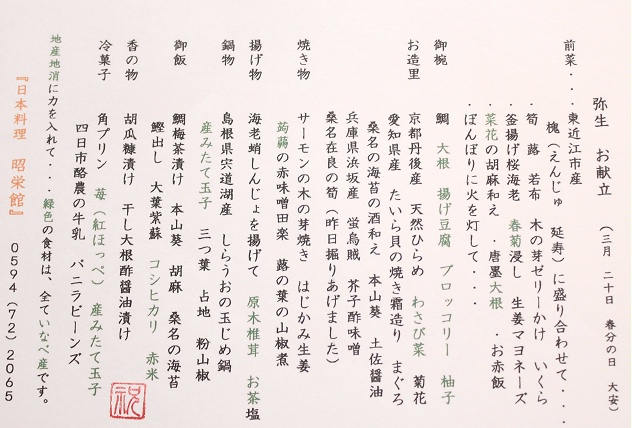 弥生　お献立　（三月　二十日　春分の日　大安）
前菜・・・東近江市産
槐（えんじゅ　延寿）に盛り合わせて・・・・
・筍　蕗　若布　木の芽ゼリーかけ　いくら
・釜揚げ桜海老　春菊浸し　生姜マヨネーズ
・菜花の胡麻和え　・唐墨大根　・お赤飯
・ぼんぼりに火を灯して・・・
御椀　鯛　大根　揚げ豆腐　ブロッコリー　柚子
お造里　京都丹後産　天然ひらめ　わさび菜　菊花
愛知県産　たいら貝の焼き霜造り　まぐろ
桑名の海苔の酒和え　本山葵　土佐醤油
兵庫県浜坂産　蛍烏賊　芥子酢味噌
桑名在良の筍（昨日掘りあげました）
焼き物　サーモンの木の芽焼き　はじかみ生姜
蒟蒻の赤味噌田楽　蕗の葉の山椒煮
揚げ物　海老蛸しんじょを揚げて　原木椎茸　お茶塩
鍋物　島根県宍道湖産　しらうおの玉じめ鍋
産みたて玉子　三つ葉　占地　粉山椒
御飯　鯛梅茶漬け　本山葵　胡麻　桑名の海苔
鰹出し　大葉紫蘇　コシヒカリ　赤米
香の物　胡瓜糠漬け　干し大根酢醤油漬け
冷菓子　角プリン　苺（紅ほっぺ）　産みたて玉子
四日市酪農の牛乳　バニラビーンズ
地産地消に力を入れて・・・緑色の食材は、全ていなべ産です。
『日本料理　昭栄館』　0594（72）2065
祝